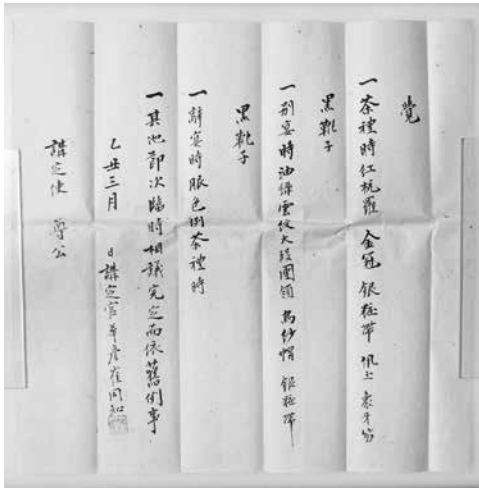 覺
一 茶禮時紅杭羅 金冠 銀極帶 佩玉 象牙笏
黑靴子
一 別宴時油綠雲紋大緞團領 烏紗帽 銀極帶
黑靴子
一 辭宴時服色例茶禮時
一 其他節次臨時相議完定而依舊例事
乙丑三月 日 講定官華彦崔同知
講定使 尊公